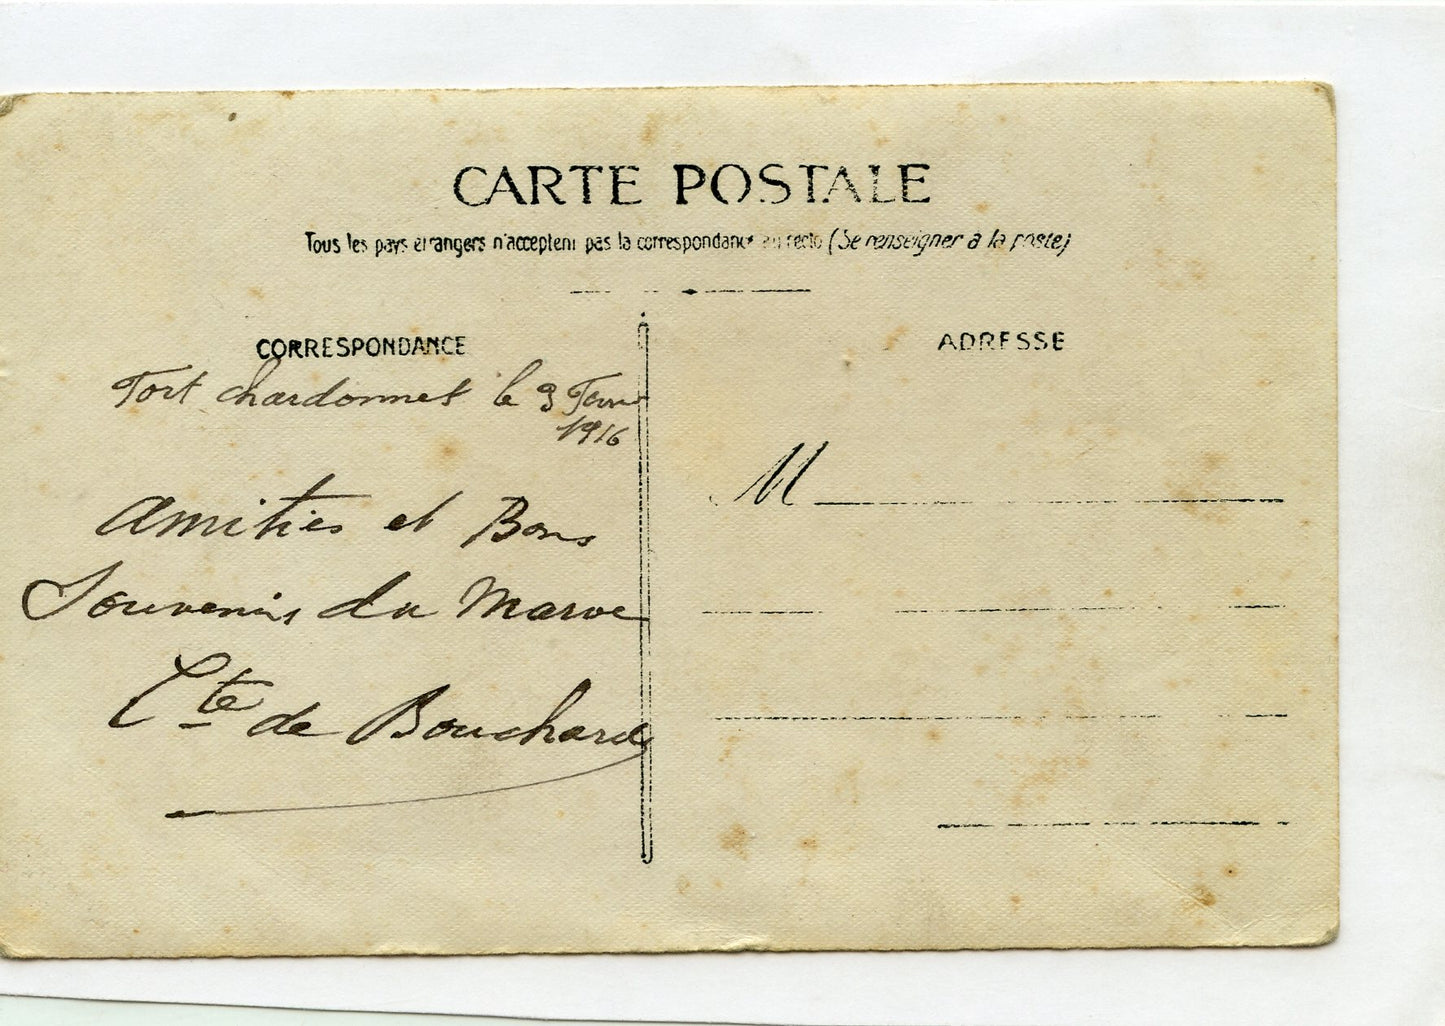 CARTE POSTALE
Tous les pays étrangers n'acceptent pas la correspondance au recto (Se renseigner à la poste)
CORRESPONDANCE
ADRESSE
Fort chardonnet le 3
1916
M
Amitiés et Bons
Souvenirs du Maroc
Cte de Bouchard